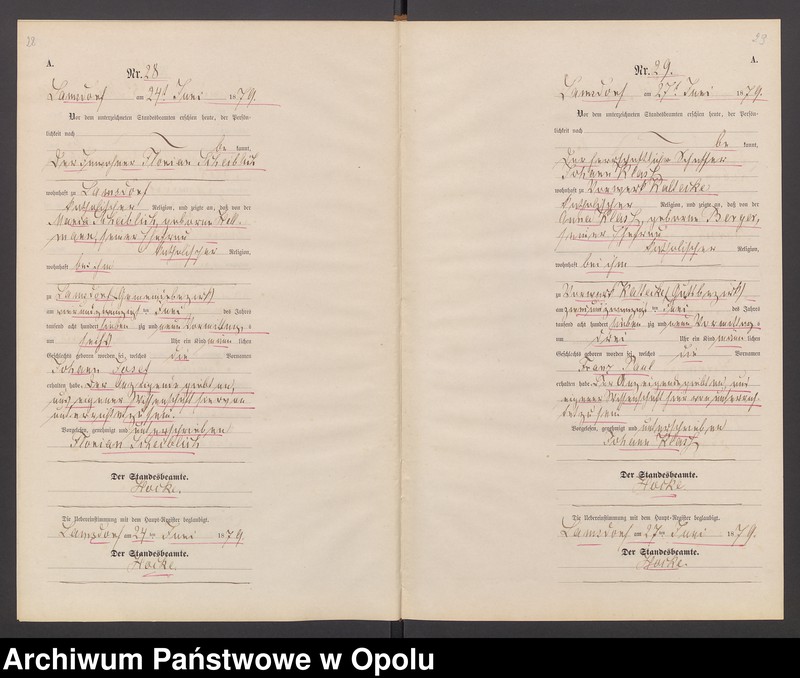 28
A.
Nr. 28
Lamsdorf am 24ten Juni 1879.
Vor dem unterzeichneten Standesbeamten erschien heute, der Persön-
lichkeit nach
be kannt,
der Inwohner Florian Scheiblich
wohnhaft zu Lamsdorf
katholischer Religion, und zeigte an, daß von der
Maria Scheiblich, geborne
mann, seiner Ehefrau
katholischer Religion,
wohnhaft bei ihm
zu Lamsdorf Gemeindebezirk
am vierundzwanzigsten ten Juni des Jahres
tausend acht hundert sieben zig und neun Vormittags
um sechs Uhr ein Kind männ lichen
Geschlechts geboren worden sei, welches die Vornamen
Johann Josef
erhalten habe. Der Anzeigende giebt an,
aus eigener Wissenschaft hiervon
unterrichtet zu sein.
Vorgelesen, genehmigt und unterschrieben
Florian Scheiblich
Der Standesbeamte.
Hocke.
Die Uebereinstimmung mit dem Haupt-Register beglaubigt.
Lamsdorf am 24ten Juni 1879.
Der Standesbeamte.
Hocke.
29
A.
Nr. 29.
Lamsdorf am 27ten Juni 1879.
Vor dem unterzeichneten Standesbeamten erschien heute, der Persön-
lichkeit nach
be kannt,
der herrschaftliche Schaffer
Johann
wohnhaft zu Vorwerk Kaltecke
katholischer Religion, und zeigte an, daß von der
Anna geborene Berger,
seiner Ehefrau
katholischer Religion,
wohnhaft bei ihm
zu Vorwerk Kaltecke (Gutsbezirk)
am ten Juni des Jahres
tausend acht hundert sieben zig und neun Vormittags
um drei Uhr ein Kind männ lichen
Geschlechts geboren worden sei, welches die Vornamen
Franz Paul
erhalten habe. Der Anzeigende giebt an, aus
eigener Wissenschaft hiervon unterrich-
tet zu sein.
Vorgelesen, genehmigt und unterschrieben
Johann
Der Standesbeamte.
Hocke
Die Uebereinstimmung mit dem Haupt-Register beglaubigt.
Lamsdorf am 27ten Juni 1879.
Der Standesbeamte.
Hocke.
Archiwum Państwowe w Opolu